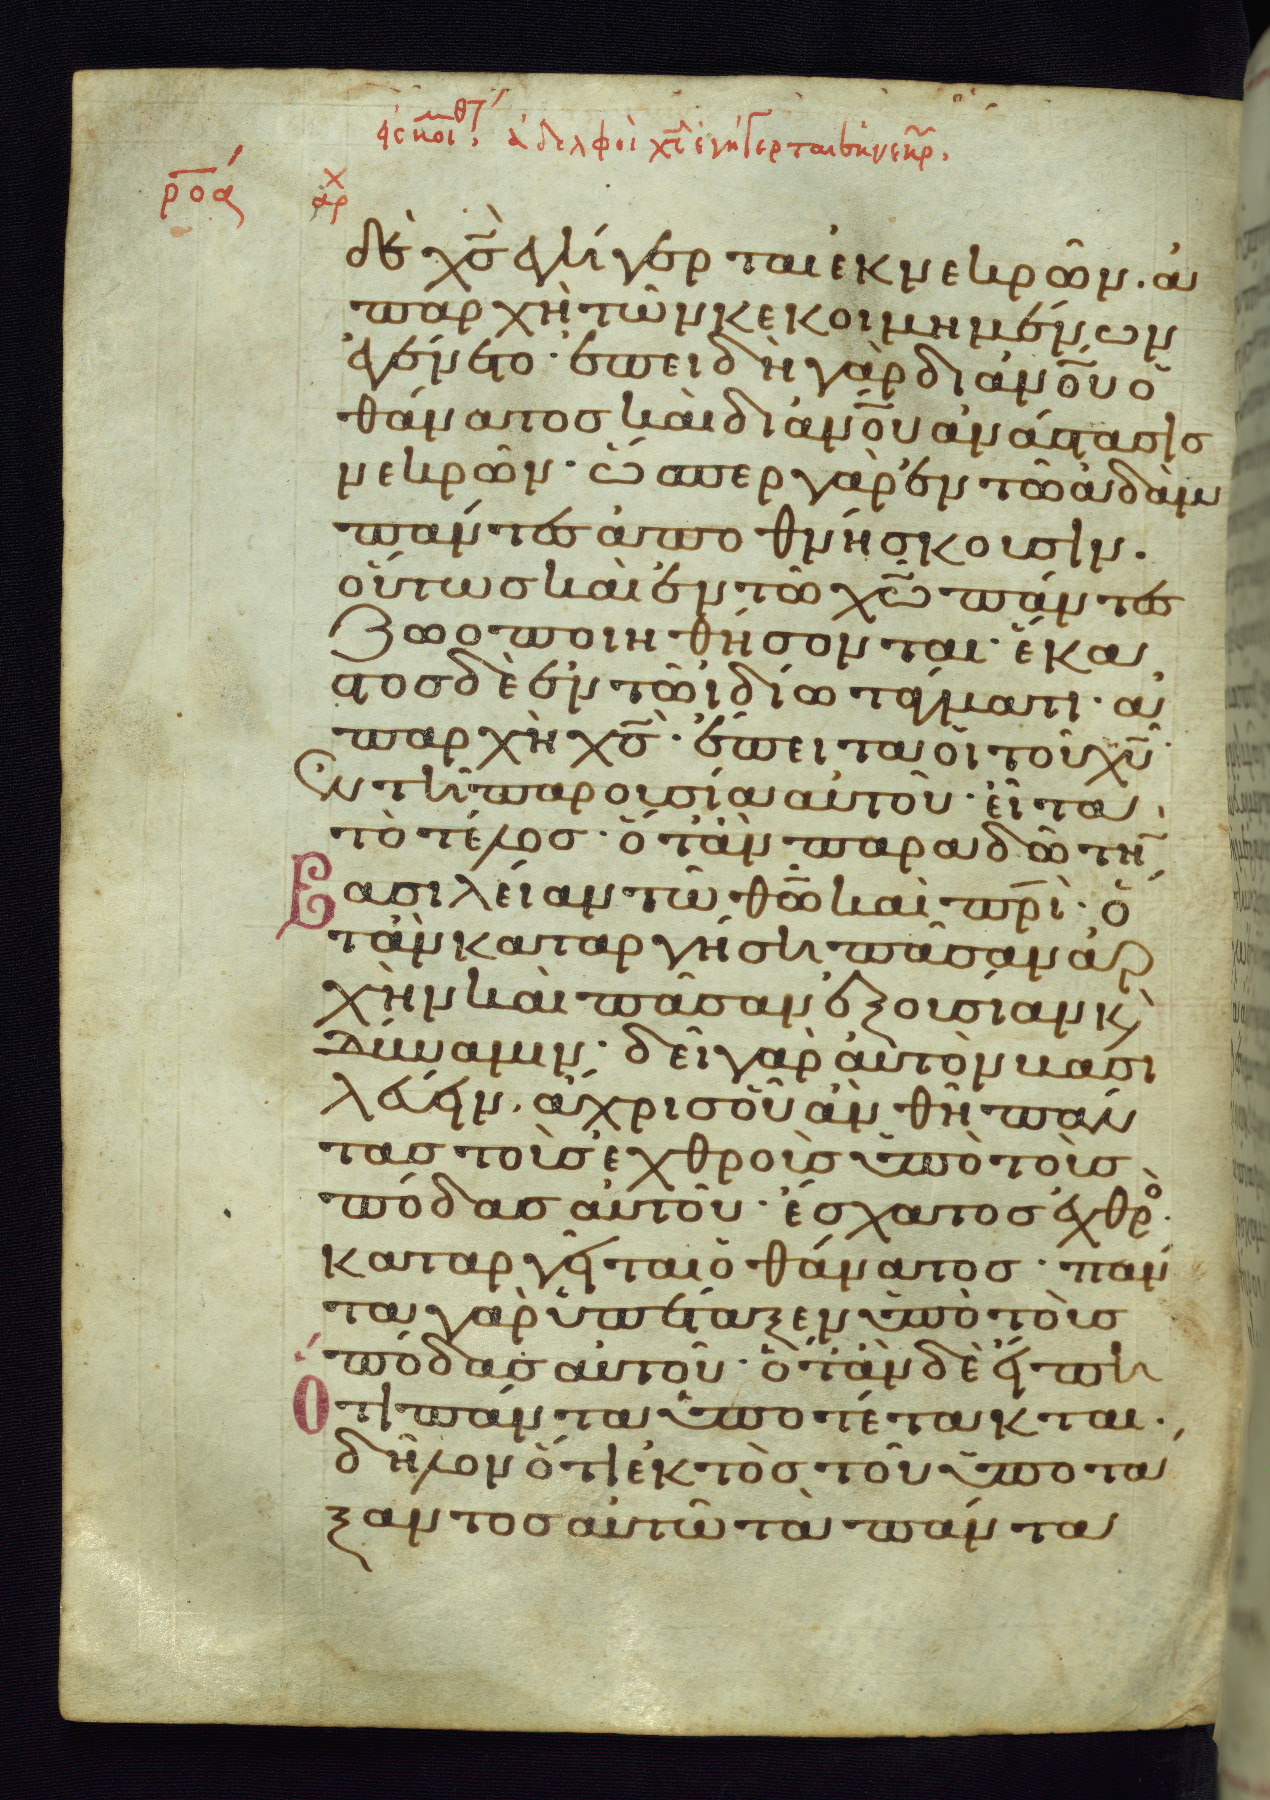 ἀδελφοὶ χ̅ς̅ ἐγήγερται ἐκ νεκρ
ρ̅ο̅ά
ἀρχ
δὲ χ̅ς̅ ἐγήγερται ἐκ νεκρῶν. ἀ
παρχὴ τῶν κεκοιμημένων
ἐγένετο· ἐπειδὴ γὰρ δι ἀν̅ο̅υ ὁ
θάνατος καὶ δι ἀν̅ο̅υ ἀνάστασις
νεκρῶν· ὥσπερ γὰρ ἐν τῶ ἀδὰμ
πάντες ἀποθνήσκουσιν.
οὕτως καὶ ἐν τῶ χ̅ω̅ πάντες
ζωοποιηθήσονται· ἕκα
στος δὲ ἐν τῶ ἰδίω τάγματι· ἀ
παρχὴ χ̅ς̅· ἔπειτα οἱ τοῦ χ̅υ̅
ἐν τῆ παρουσία αὐτοῦ· εἶτα
τὸ τέλος· ὅτὰν παραδῶ τὴ̅
βασιλείαν τῶ θ̅ω̅ καὶ π̅ρ̅ι̅· ὅ
τὰν καταργήση πᾶσαν ἀρ
χὴν καὶ πᾶσαν ἐξουσίαν κ̀
δύναμιν· δεῖ γὰρ αὐτὸν βασι
λεύειν. ἄχρις οὗ ἂν θῆ πάν
τας τοὺς ἐχθροὺς ὑπὸ τοὺς
πόδας αὐτοῦ· ἔσχατος ἐχθρὸ
καταργεῖται ὁ θάνατος· πάν
τα γὰρ ὑπέταξεν ὑπὸ τοὺς
πόδας αὐτοῦ· ὅτὰν δὲ εἴπη
ὅτι πάντα ὑποτέτακται.
δῆλον ὅτι ἐκτὸς τοῦ ὑποτά
ξαντος αὐτῶ τὰ πάντα